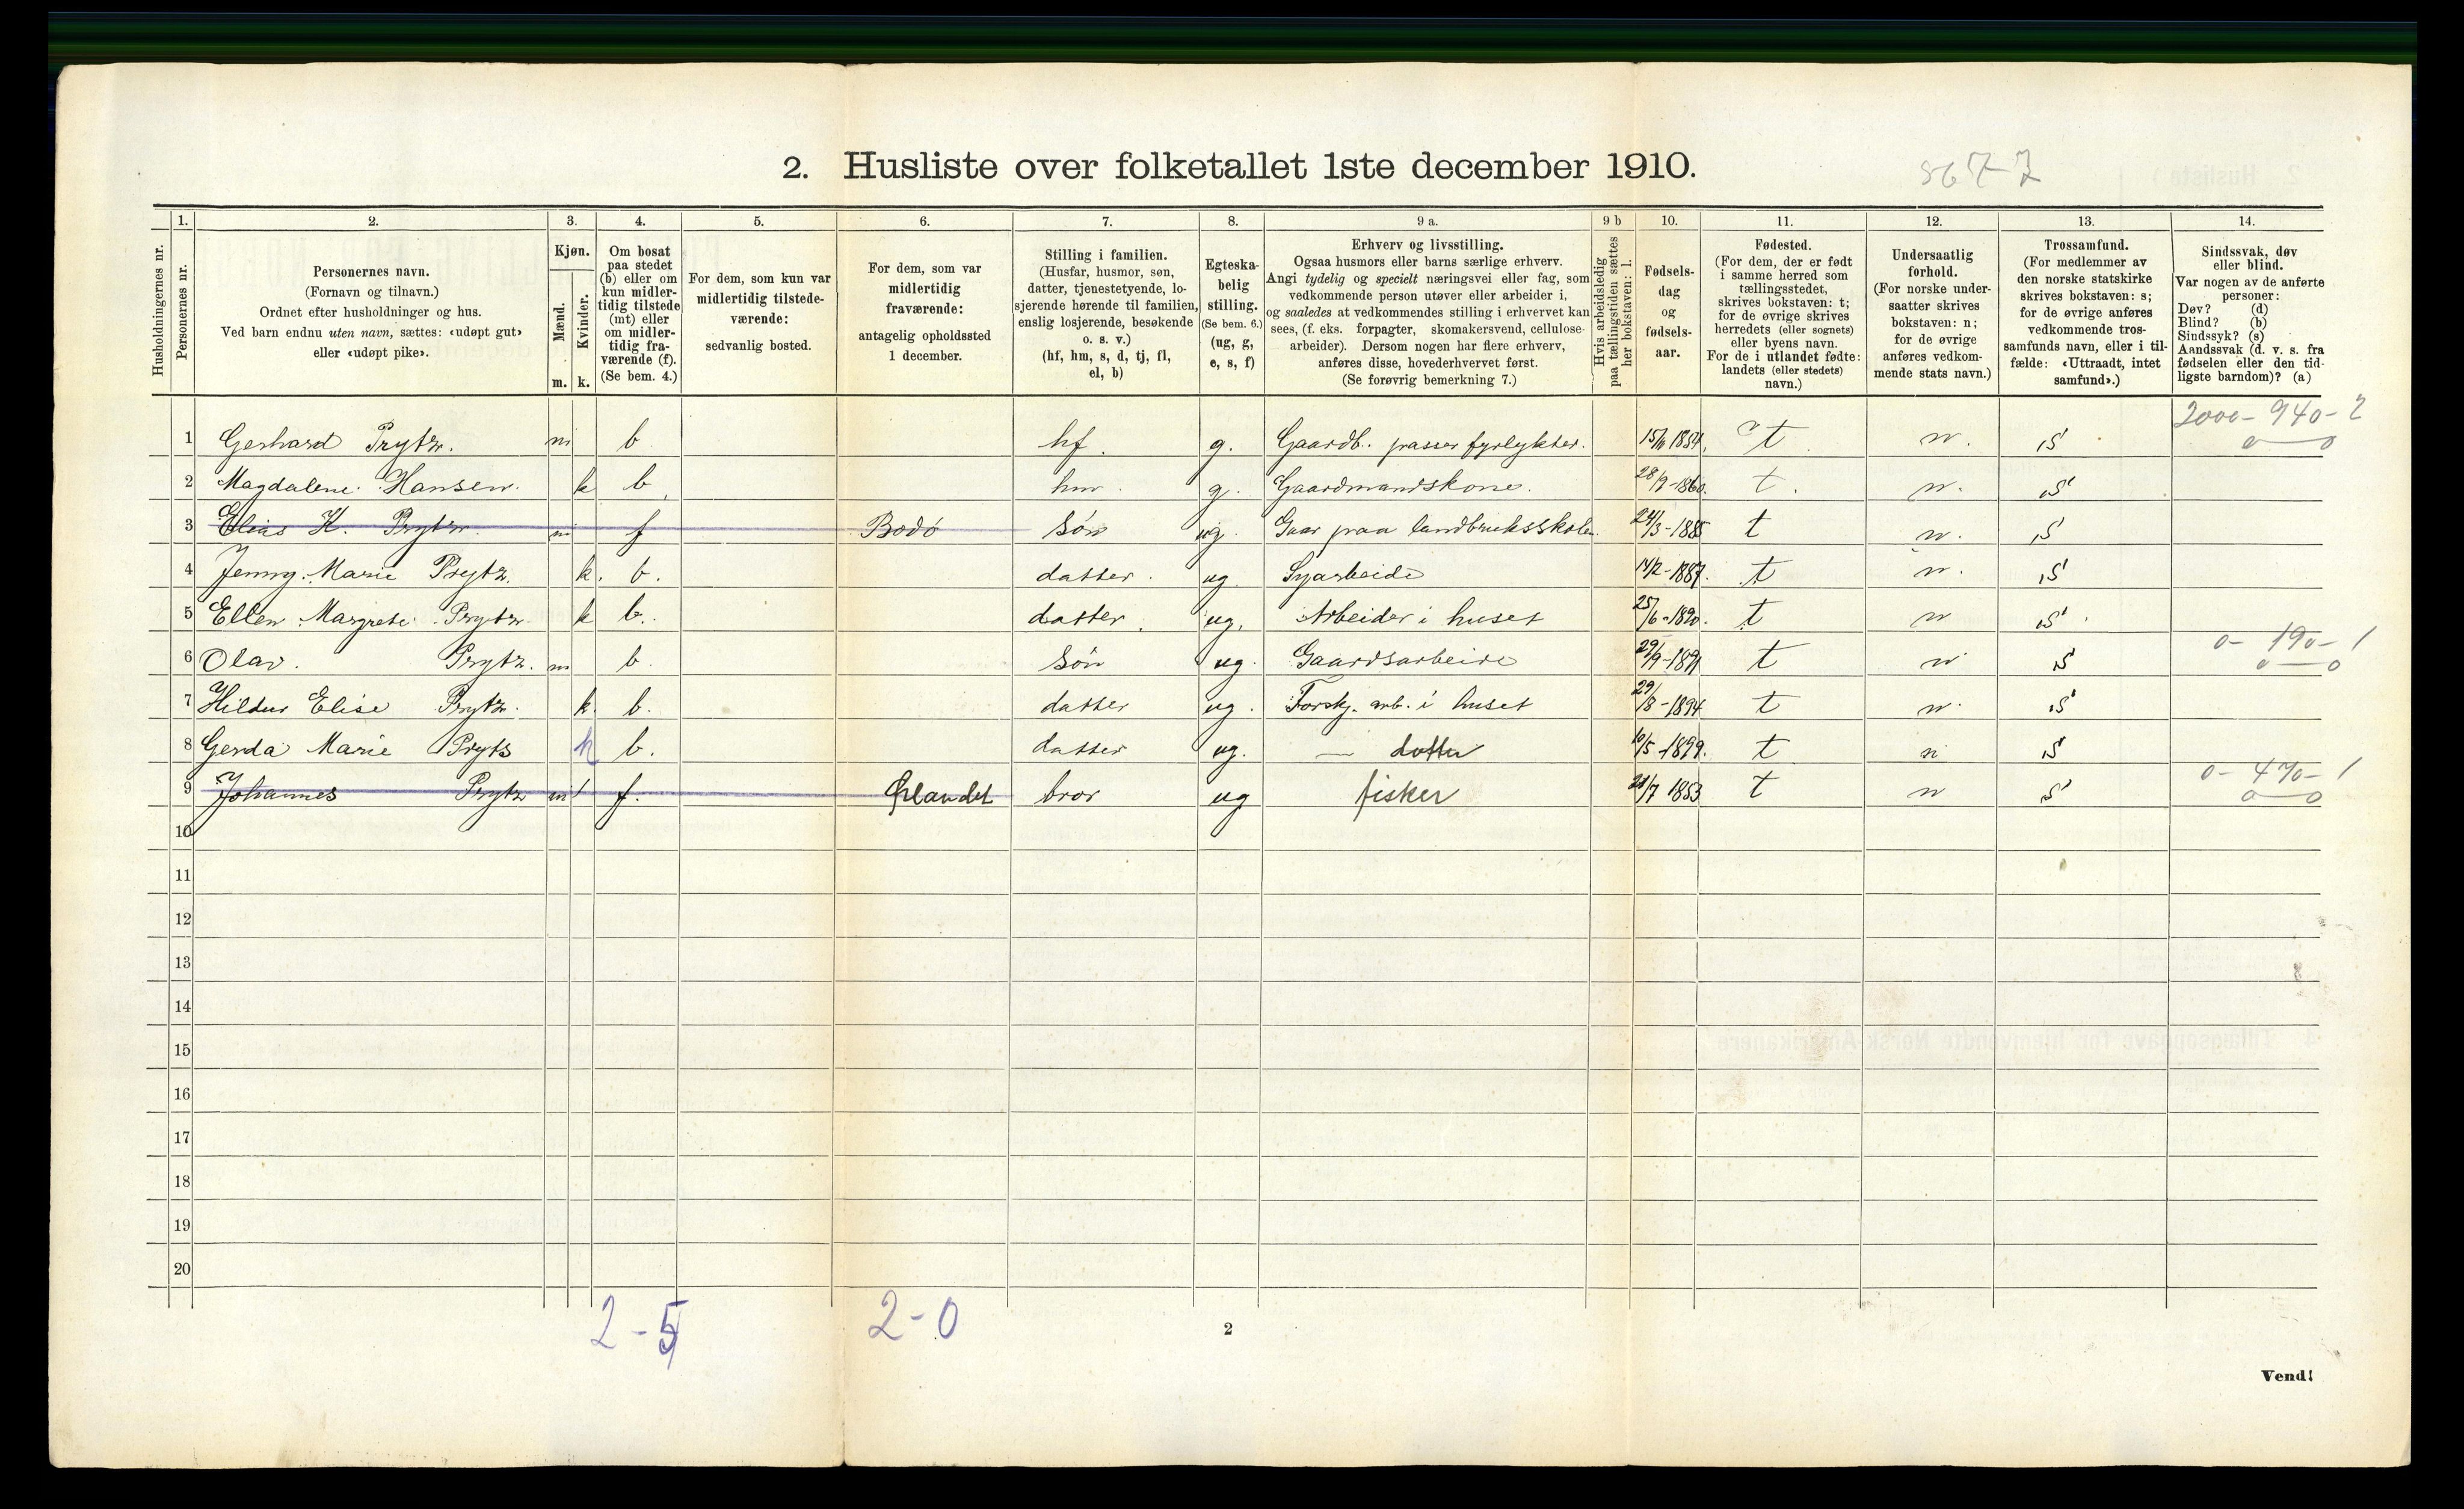 2. Husliste over folketallet 1ste december 1910.
Husholdningernes nr.
1. Personernes nr.
2. Personernes navn.
(Fornavn og tilnavn.)
Ordnet efter husholdninger og hus.
Ved barn endnu uten navn, sættes: «udøpt gut»
eller «udøpt pike».
3. Kjøn.
Mænd. m.
Kvinder. k.
4. Om bosat
paa stedet
(b) eller om
kun midler-
tidig tilstede
(mt) eller
om midler-
tidig fra-
værende (f).
(Se bem. 4.)
5. For dem, som kun var
midlertidig tilstede-
værende:
sedvanlig bosted.
6. For dem, som var
midlertidig
fraværende:
antagelig opholdssted
1 december.
7. Stilling i familien.
(Husfar, husmor, søn,
datter, tjenestetyende, lo-
sjerende hørende til familien,
enslig losjerende, besøkende
o. s. v.)
(hf, hm, s, d, tj, fl,
el, b)
8. Egteska-
belig
stilling.
(Se bem. 6.)
(ug, g,
e, s, f)
9 a. Erhverv og livsstilling.
Ogsaa husmors eller barns særlige erhverv.
Angi tydelig og specielt næringsvei eller fag, som
vedkommende person utøver eller arbeider i,
og saaledes at vedkommendes stilling i erhvervet kan
sees, (f. eks. forpagter, skomakersvend, cellulose-
arbeider). Dersom nogen har flere erhverv,
anføres disse, hovederhvervet først.
(Se forøvrig bemerkning 7.)
9 b Hvis arbeidsledig
paa tællingstiden sættes
her bokstaven: l.
10. Fødsels-
dag
og
fødsels-
aar.
11. Fødested.
(For dem, der er født
i samme herred som
tællingsstedet,
skrives bokstaven: t;
for de øvrige skrives
herredets (eller sognets)
eller byens navn.
For de i utlandet fødte:
landets (eller stedets)
navn.)
12. Undersaatlig
forhold.
(For norske under-
saatter skrives
bokstaven: n;
for de øvrige
anføres vedkom-
mende stats navn.)
13. Trossamfund.
(For medlemmer av
den norske statskirke
skrives bokstaven: s;
for de øvrige anføres
vedkommende tros-
samfunds navn, eller i til-
fælde: «Uttraadt, intet
samfund».)
14. Sindssvak, døv
eller blind.
Var nogen av de anførte
personer:
Døv? (d)
Blind? (b)
Sindssyk? (s)
Aandssvak (d. v. s. fra
fødselen eller den tid-
ligste barndom)? (a)
2000 - 940 - 2
1 Gerhard Prytz. m b hf. g. Gaardb. passer fyrlykter. t n. S 0 0
2 Magdalene Hansen. k b hm. g. Gaardmandskone. 28/9-1860. t. n. S
3 Elias K. Prytz m f Bodø Søn ug. Gaar paa landbruksskolen. 24/3-1885 t n. S
4 Jenny Marie Prytz. k. b. datter. ug Syarbeide 14/2-1887. t n. S
5 Ellen Margrete Prytz k b. datter. ug. Arbeider i huset 25/6-1890. t n S
0- 190- 1
6 Olav. Prytz. m b. Søn ug. Gaardsarbeide 29/9-1891 t n S 0 0
7 Hildur Elise Prytz. k. b. datter ug. Forskj. arb. i huset 29/8-1894 t n. S
8 Gerda Marie Pryts k b. datter ug. — datter 10/5-1899. t n S
0- 470- 1
9 Johannes Prytz m f. bror ug fisker 21/7 1853 t n S 0 0
10
11
12
13
14
15
16
17
18
19
20
2-5 2-0
2
Vend!